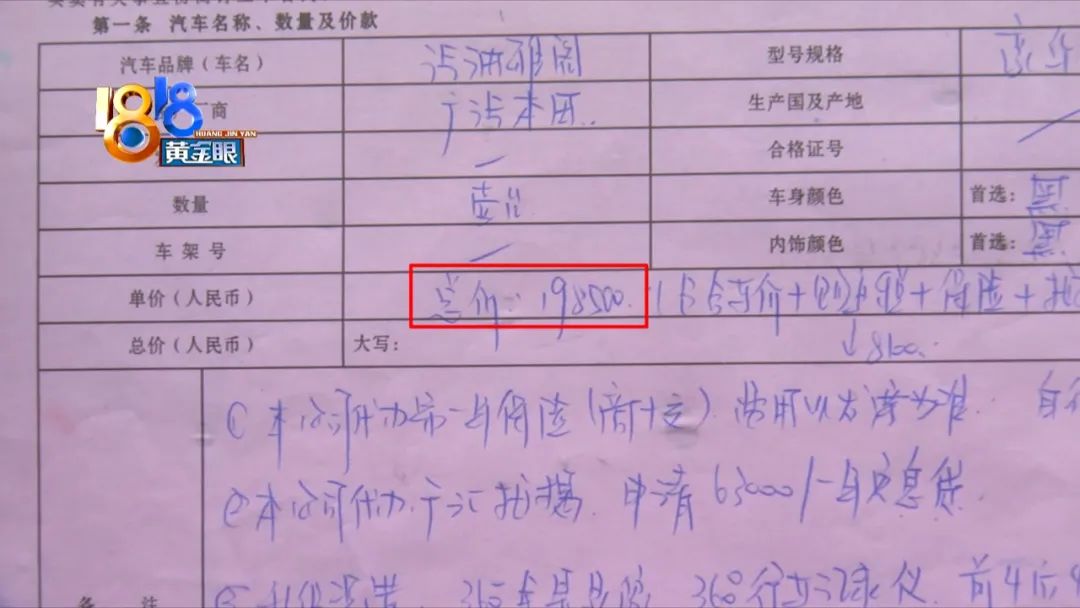 第一条 汽车名称、数量及价款
汽车品牌（车名） 汽油雅阁 型号规格 豪华
厂商 广汽本田 生产国及产地
合格证号
数量 壹 车身颜色 首选：黑
车架号 内饰颜色 首选：黑
单价（人民币） 总价：198500. 包含车价+购置税+保险+
总价（人民币） 大写： ↓8100.
①本公司代办第一年保险（商+交）. 费用以发票为准.
②本公司代办广汇按揭. 申请63000/一年免息贷.
360 360行车记录仪 前4后4
备 注
1818
HUANG JIN YAN
黄金眼